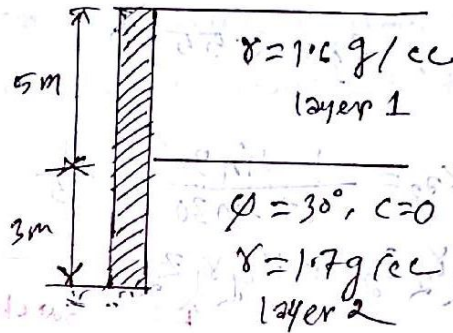 5m
γ = 1.6 g/cc
layer 1
3m
φ = 30°, c = 0
γ = 1.7 g/cc
layer 2